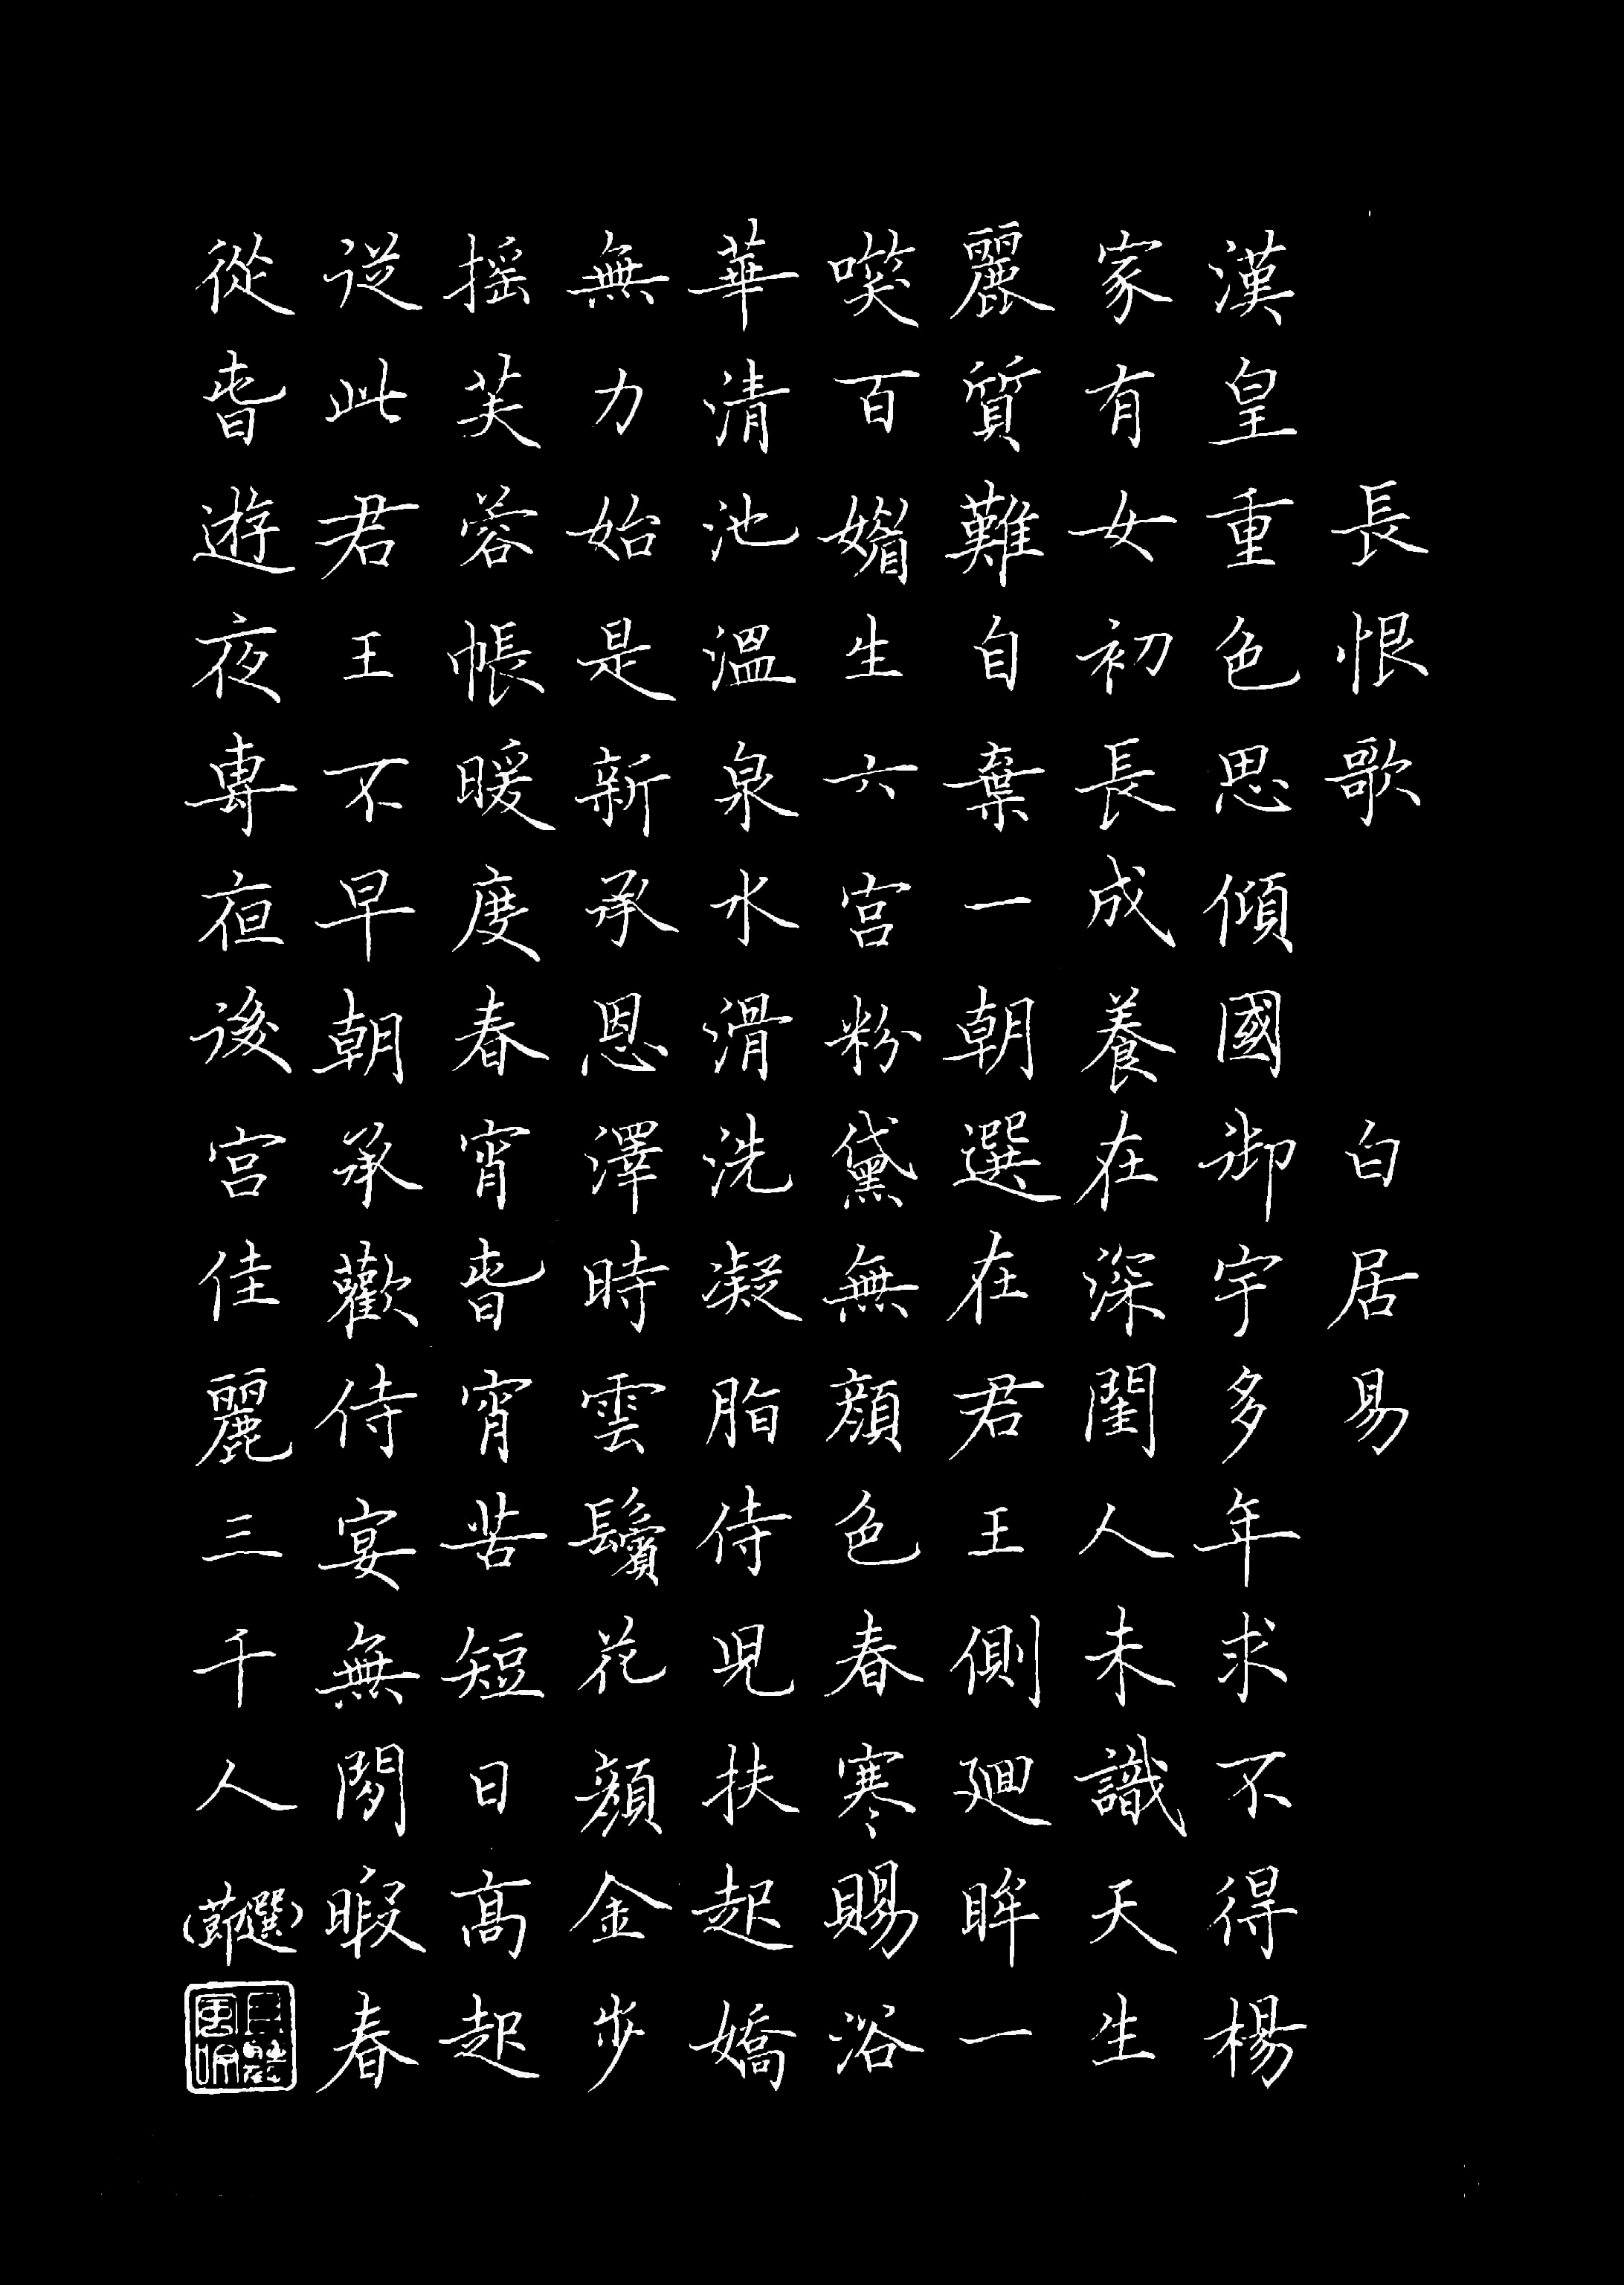 長恨歌 白居易
漢皇重色思傾國御宇多年求不得楊
家有女初長成養在深閨人未識天生
麗質難自棄一朝選在君王側廻眸一
嘆百媚生六宮粉黛無顏色春寒賜浴
華清池溫泉水滑洗凝脂侍児扶起嬌
無力始是新承恩澤時雲鬢花顏金步
搖芙蓉帳暖度春宵春宵苦短日高起
從此君王不早朝承歡侍宴無閒暇春
從春遊夜專夜後宮佳麗三千人
(節選)